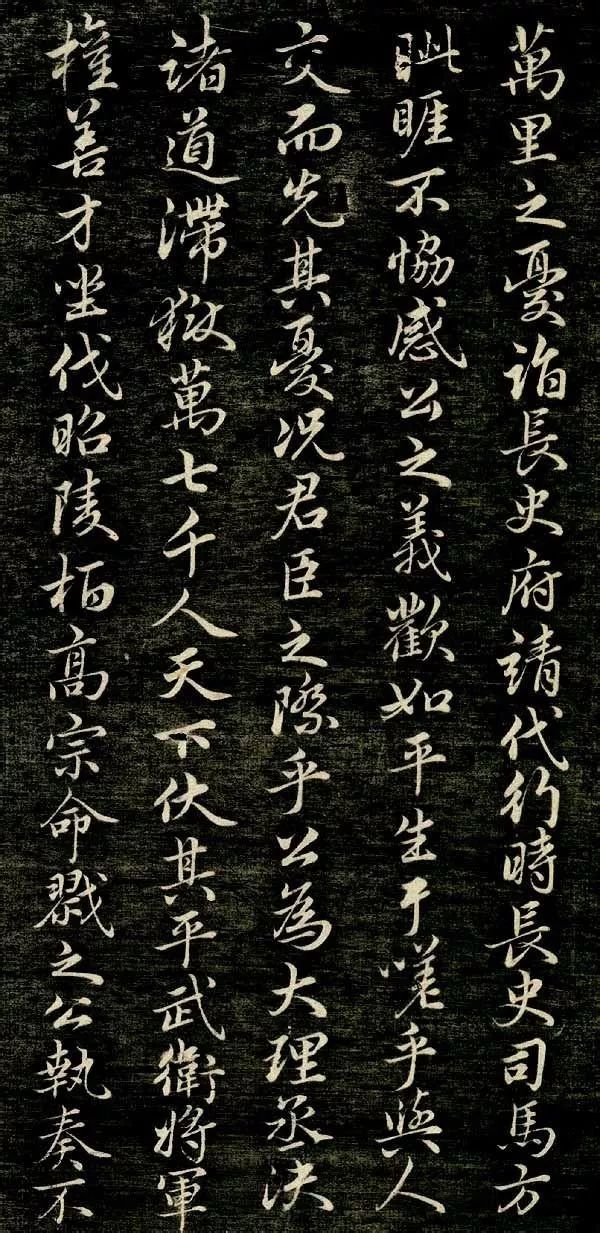 萬里之憂詣長史府請代行時長史司馬方
眦睢不恊感公之義歡如平生于嗟乎與人
交而先其憂况君臣之際乎公為大理丞決
諸道滯獄萬七千人天下伏其平武衛將軍
權善才坐伐昭陵栢髙宗命戮之公執奏不